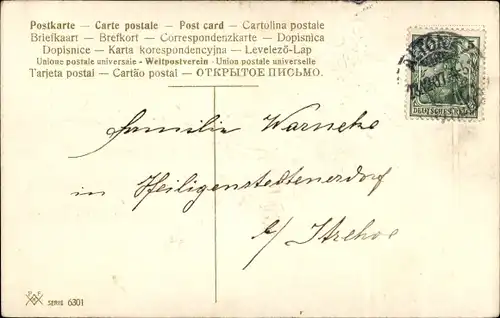 Postkarte – Carte postale – Post card – Cartolina postale
Briefkaart – Brefkort – Correspondenzkarte – Dopisnica
Dopisnice – Karta korespondencyjna – Levelező-Lap
Unione postale universale - Weltpostverein - Union postale universelle
Tarjeta postal – Cartão postal – ОТКРЫТОЕ ПИСЬМО.
ALTONA
5
DEUTSCHES REICH
Familie Warneke
in Heiligenstedtenerdorf
b/ Itzehoe
SERIE 6301